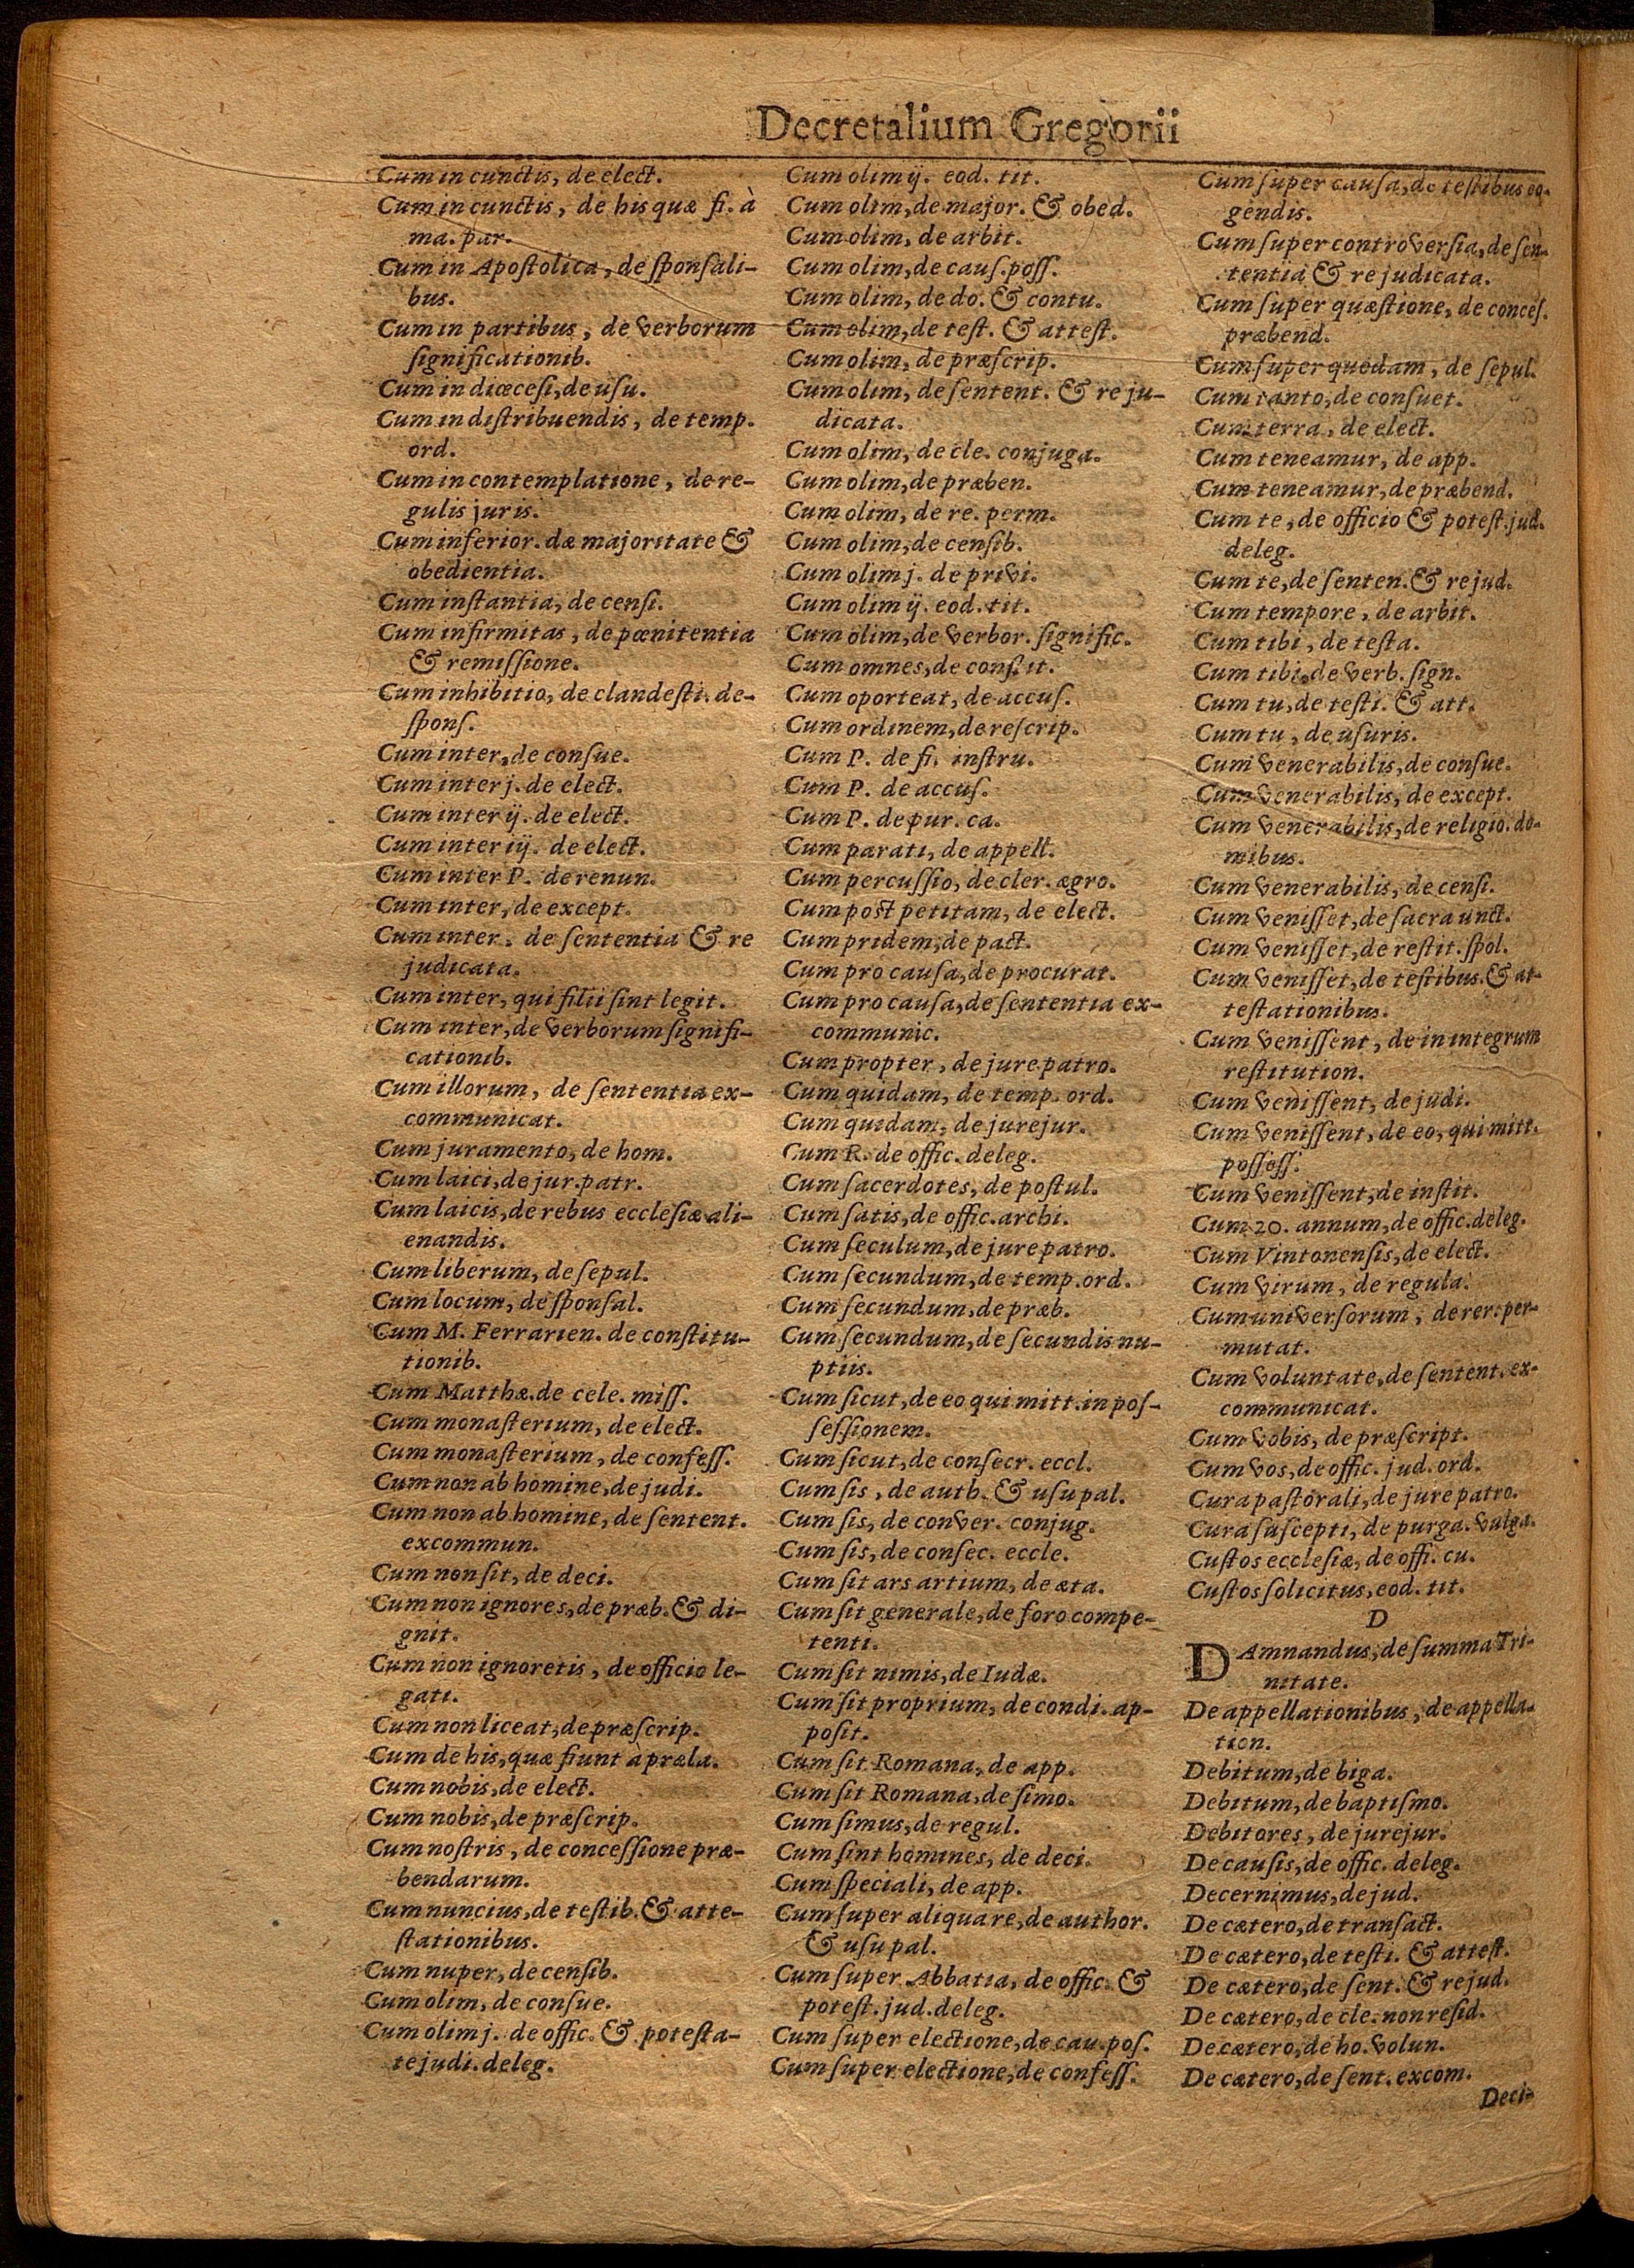 Decretalium Gregorii
Cum in cunctis, de elect.
Cum in cunctis, de his quæ fi. à
ma. par.
Cum in Apostolica, de sponsali-
bus.
Cum in partibus, de verborum
significationib.
Cum in diœcesi, de usu.
Cum in distribuendis, de temp.
ord.
Cum in contemplatione, de re-
gulis juris.
Cum inferior. dæ majoritate &
obedientia.
Cum instantia, de censi.
Cum infirmitas, de pœnitentia
& remissione.
Cum inhibitio, de clandesti. de-
spons.
Cum inter, de consue.
Cum inter j. de elect.
Cum inter ij. de elect.
Cum inter iij. de elect.
Cum inter P. de renun.
Cum inter, de except.
Cum inter. de sententia & re
judicata.
Cum inter, qui filii sint legit.
Cum inter, de verborum signifi-
cationib.
Cum illorum, de sententia ex-
communicat.
Cum juramento, de hom.
Cum laici, de jur. patr.
Cum laicis, de rebus ecclesiæ ali-
enandis.
Cum liberum, de sepul.
Cum locum, de sponsal.
Cum M. Ferrarien. de constitu-
tionib.
Cum Matthæ. de cele. miss.
Cum monasterium, de elect.
Cum monasterium, de confess.
Cum non ab homine, de judi.
Cum non ab homine, de sentent.
excommun.
Cum non sit, de deci.
Cum non ignores, de præb. & di-
gnit.
Cum non ignoretis, de officio le-
gati.
Cum non liceat, de præscrip.
Cum de his, quæ fiunt à præla.
Cum nobis, de elect.
Cum nobis, de præscrip.
Cum nostris, de concessione præ-
bendarum.
Cum nuncius, de testib. & atte-
stationibus.
Cum nuper, de censib.
Cum olim, de consue.
Cum olim j. de offic. & potesta-
te judi. deleg.
Cum olim ij. eod. tit.
Cum olim, de major. & obed.
Cum olim, de arbit.
Cum olim, de caus. poss.
Cum olim, de do. & contu.
Cum olim, de test. & attest.
Cum olim, de præscrip.
Cum olim, de sentent. & re ju-
dicata.
Cum olim, de cle. conjuga.
Cum olim, de præben.
Cum olim, de re. perm.
Cum olim, de censib.
Cum olim j. de privi.
Cum olim ij. eod. tit.
Cum olim, de verbor. signific.
Cum omnes, de constit.
Cum oporteat, de accus.
Cum ordinem, de rescrip.
Cum P. de fi. instru.
Cum P. de accus.
Cum P. de pur. ca.
Cum parati, de appell.
Cum percussio, de cler. ægro.
Cum post petitam, de elect.
Cum pridem, de pact.
Cum pro causa, de procurat.
Cum pro causa, de sententia ex-
communic.
Cum propter, de jure patro.
Cum quidam, de temp. ord.
Cum quidam, de jurejur.
Cum R. de offic. deleg.
Cum sacerdotes, de postul.
Cum satis, de offic. archi.
Cum seculum, de jure patro.
Cum secundum, de temp. ord.
Cum secundum, de præb.
Cum secundum, de secundis nu-
ptiis.
Cum sicut, de eo qui mitt. in pos-
sessionem.
Cum sicut, de consecr. eccl.
Cum sis, de auth. & usu pal.
Cum sis, de conver. conjug.
Cum sis, de consec. eccle.
Cum sit ars artium, de æta.
Cum sit generale, de foro compe-
tenti.
Cum sit nimis, de Iudæ.
Cum sit proprium, de condi. ap-
posit.
Cum sit Romana, de app.
Cum sit Romana, de simo.
Cum simus, de regul.
Cum sint homines, de deci.
Cum speciali, de app.
Cum super aliqua re, de author.
& usu pal.
Cum super Abbatia, de offic. &
potest. jud. deleg.
Cum super electione, de cau. pos.
Cum super electione, de confess.
Cum super causa, de testibus co-
gendis.
Cum super controversia, de sen-
tentia & re judicata.
Cum super quæstione, de conces.
præbend.
Cum super quodam, de sepul.
Cum tanto, de consuet.
Cum terra, de elect.
Cum teneamur, de app.
Cum teneamur, de præbend.
Cum te, de officio & potest. jud.
deleg.
Cum te, de senten. & re jud.
Cum tempore, de arbit.
Cum tibi, de testa.
Cum tibi, de verb. sign.
Cum tu, de testi. & att.
Cum tu, de usuris.
Cum venerabilis, de consue.
Cum venerabilis, de except.
Cum venerabilis, de religio. do-
mibus.
Cum venerabilis, de censi.
Cum venisset, de sacra unct.
Cum venisset, de restit. spol.
Cum venisset, de testibus. & at-
testationibus.
Cum venissent, de in integrum
restitution.
Cum venissent, de judi.
Cum venissent, de eo, qui mitt.
possess.
Cum venissent, de instit.
Cum 20. annum, de offic. deleg.
Cum Vintonensis, de elect.
Cum virum, de regula.
Cum universorum, de rer. per-
mutat.
Cum voluntate, de sentent. ex-
communicat.
Cum vobis, de præscript.
Cum vos, de offic. jud. ord.
Cura pastorali, de jure patro.
Cura suscepti, de purga. vulga.
Custos ecclesiæ, de offi. cu.
Custos solicitus, eod. tit.
D
DAmnandus, de summa Tri-
nitate.
De appellationibus, de appella-
tion.
Debitum, de biga.
Debitum, de baptismo.
Debitores, de jurejur.
De causis, de offic. deleg.
Decernimus, de jud.
De cætero, de transact.
De cætero, de testi. & attest.
De cætero, de sent. & re jud.
De cætero, de cle. non resid.
De cætero, de ho. volun.
De cætero, de sent. excom.
Deci-